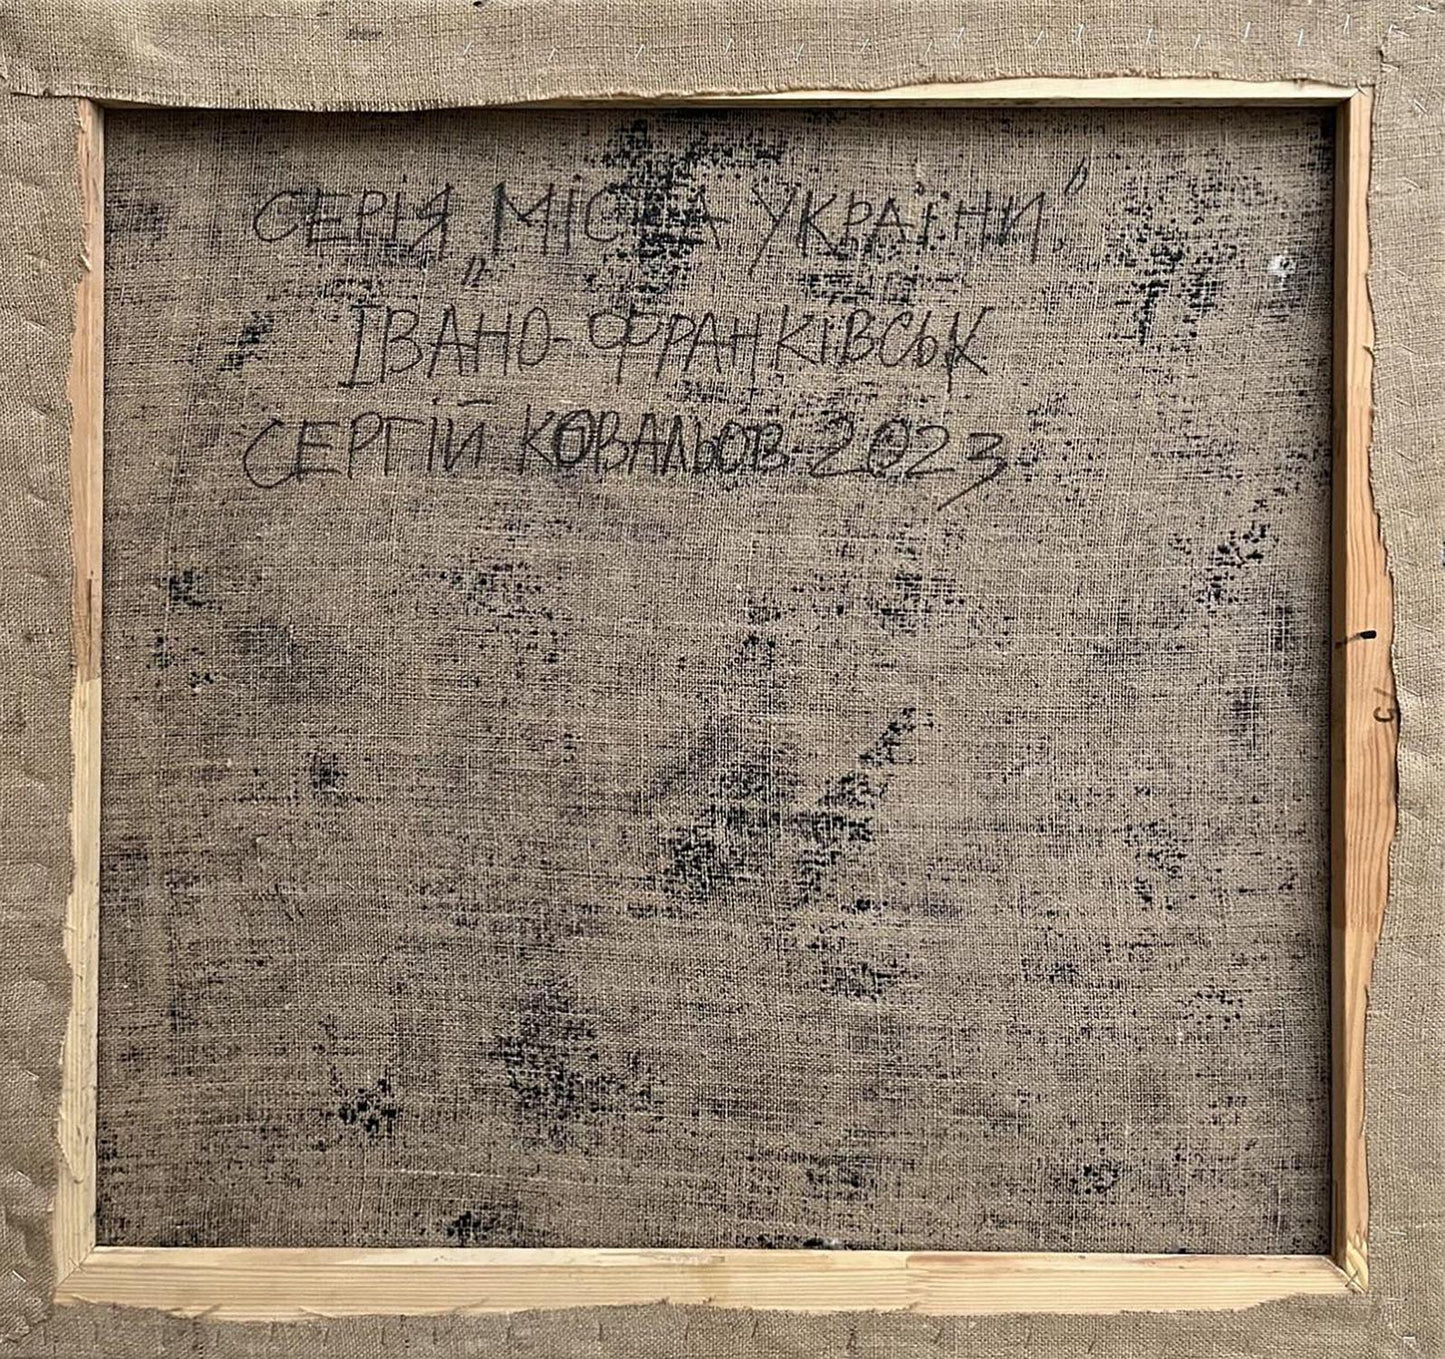 СЕРІЯ "МІСТА УКРАЇНИ."
ІВАНО-ФРАНКІВСЬК
СЕРГІЙ КОВАЛЬОВ 2023